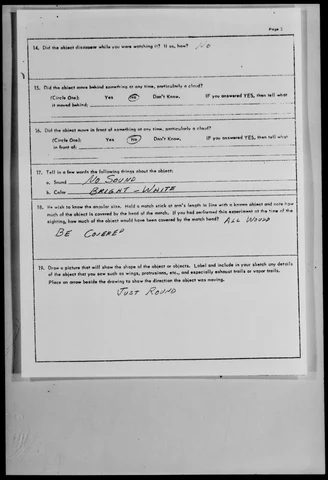 Page 2
14. Did the object disappear while you were watching it? If so, how? NO
15. Did the object move behind something at any time, particularly a cloud?
(Circle One): Yes No Don't Know. If you answered YES, then tell what
it moved behind:
16. Did the object move in front of something at any time, particularly a cloud?
(Circle One): Yes No Don't Know. If you answered YES, then tell what
in front of:
17. Tell in a few words the following things about the object:
a. Sound NO SOUND
b. Color BRIGHT - WHITE
18. We wish to know the angular size. Hold a match stick at arm's length in line with a known object and note how
much of the object is covered by the head of the match. If you had performed this experiment at the time of the
sighting, how much of the object would have been covered by the match head? ALL WOULD
BE COVERED
19. Draw a picture that will show the shape of the object or objects. Label and include in your sketch any details
of the object that you saw such as wings, protrusions, etc., and especially exhaust trails or vapor trails.
Place an arrow beside the drawing to show the direction the object was moving.
JUST ROUND